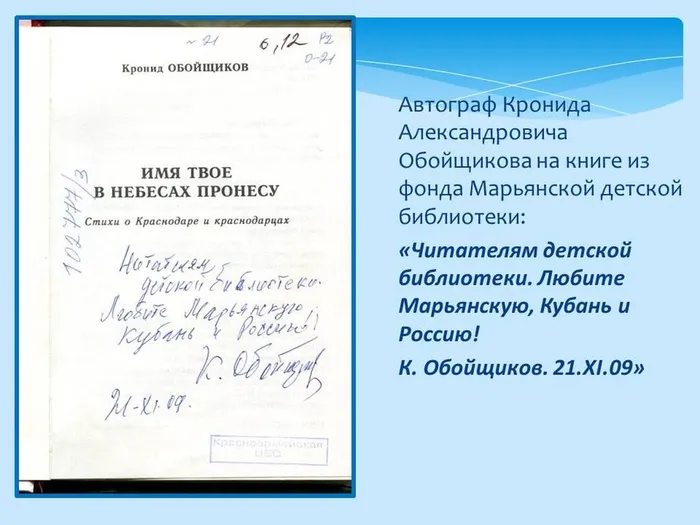 ~ 21
6,12
Р2
О-21
Кронид ОБОЙЩИКОВ
102777/3
ИМЯ ТВОЕ
В НЕБЕСАХ ПРОНЕСУ
Стихи о Краснодаре и краснодарцах
Читателям
детской библиотеки.
Любите Марьянскую,
Кубань и Россию!
К. Обойщиков
21-XI.09.
Красноармейская
ЦБС
Автограф Кронида
Александровича
Обойщикова на книге из
фонда Марьянской детской
библиотеки:
«Читателям детской
библиотеки. Любите
Марьянскую, Кубань и
Россию!
К. Обойщиков. 21.XI.09»